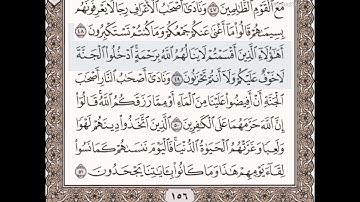 مَعَ ٱلْقَوْمِ ٱلظَّٰلِمِينَ ٤٧ وَنَادَىٰٓ أَصْحَٰبُ ٱلْأَعْرَافِ رِجَالًا يَعْرِفُونَهُم
بِسِيمَىٰهُمْ قَالُوا۟ مَآ أَغْنَىٰ عَنكُمْ جَمْعُكُمْ وَمَا كُنتُمْ تَسْتَكْبِرُونَ ٤٨
أَهَٰٓؤُلَآءِ ٱلَّذِينَ أَقْسَمْتُمْ لَا يَنَالُهُمُ ٱللَّهُ بِرَحْمَةٍ ٱدْخُلُوا۟ ٱلْجَنَّةَ
لَا خَوْفٌ عَلَيْكُمْ وَلَآ أَنتُمْ تَحْزَنُونَ ٤٩ وَنَادَىٰٓ أَصْحَٰبُ ٱلنَّارِ أَصْحَٰبَ
ٱلْجَنَّةِ أَنْ أَفِيضُوا۟ عَلَيْنَا مِنَ ٱلْمَآءِ أَوْ مِمَّا رَزَقَكُمُ ٱللَّهُ قَالُوٓا۟
إِنَّ ٱللَّهَ حَرَّمَهُمَا عَلَى ٱلْكَٰفِرِينَ ٥٠ ٱلَّذِينَ ٱتَّخَذُوا۟ دِينَهُمْ لَهْوًا
وَلَعِبًا وَغَرَّتْهُمُ ٱلْحَيَوٰةُ ٱلدُّنْيَا فَٱلْيَوْمَ نَنسَىٰهُمْ كَمَا نَسُوا۟
لِقَآءَ يَوْمِهِمْ هَٰذَا وَمَا كَانُوا۟ بِـَٔايَٰتِنَا يَجْحَدُونَ ٥١
١٥٦